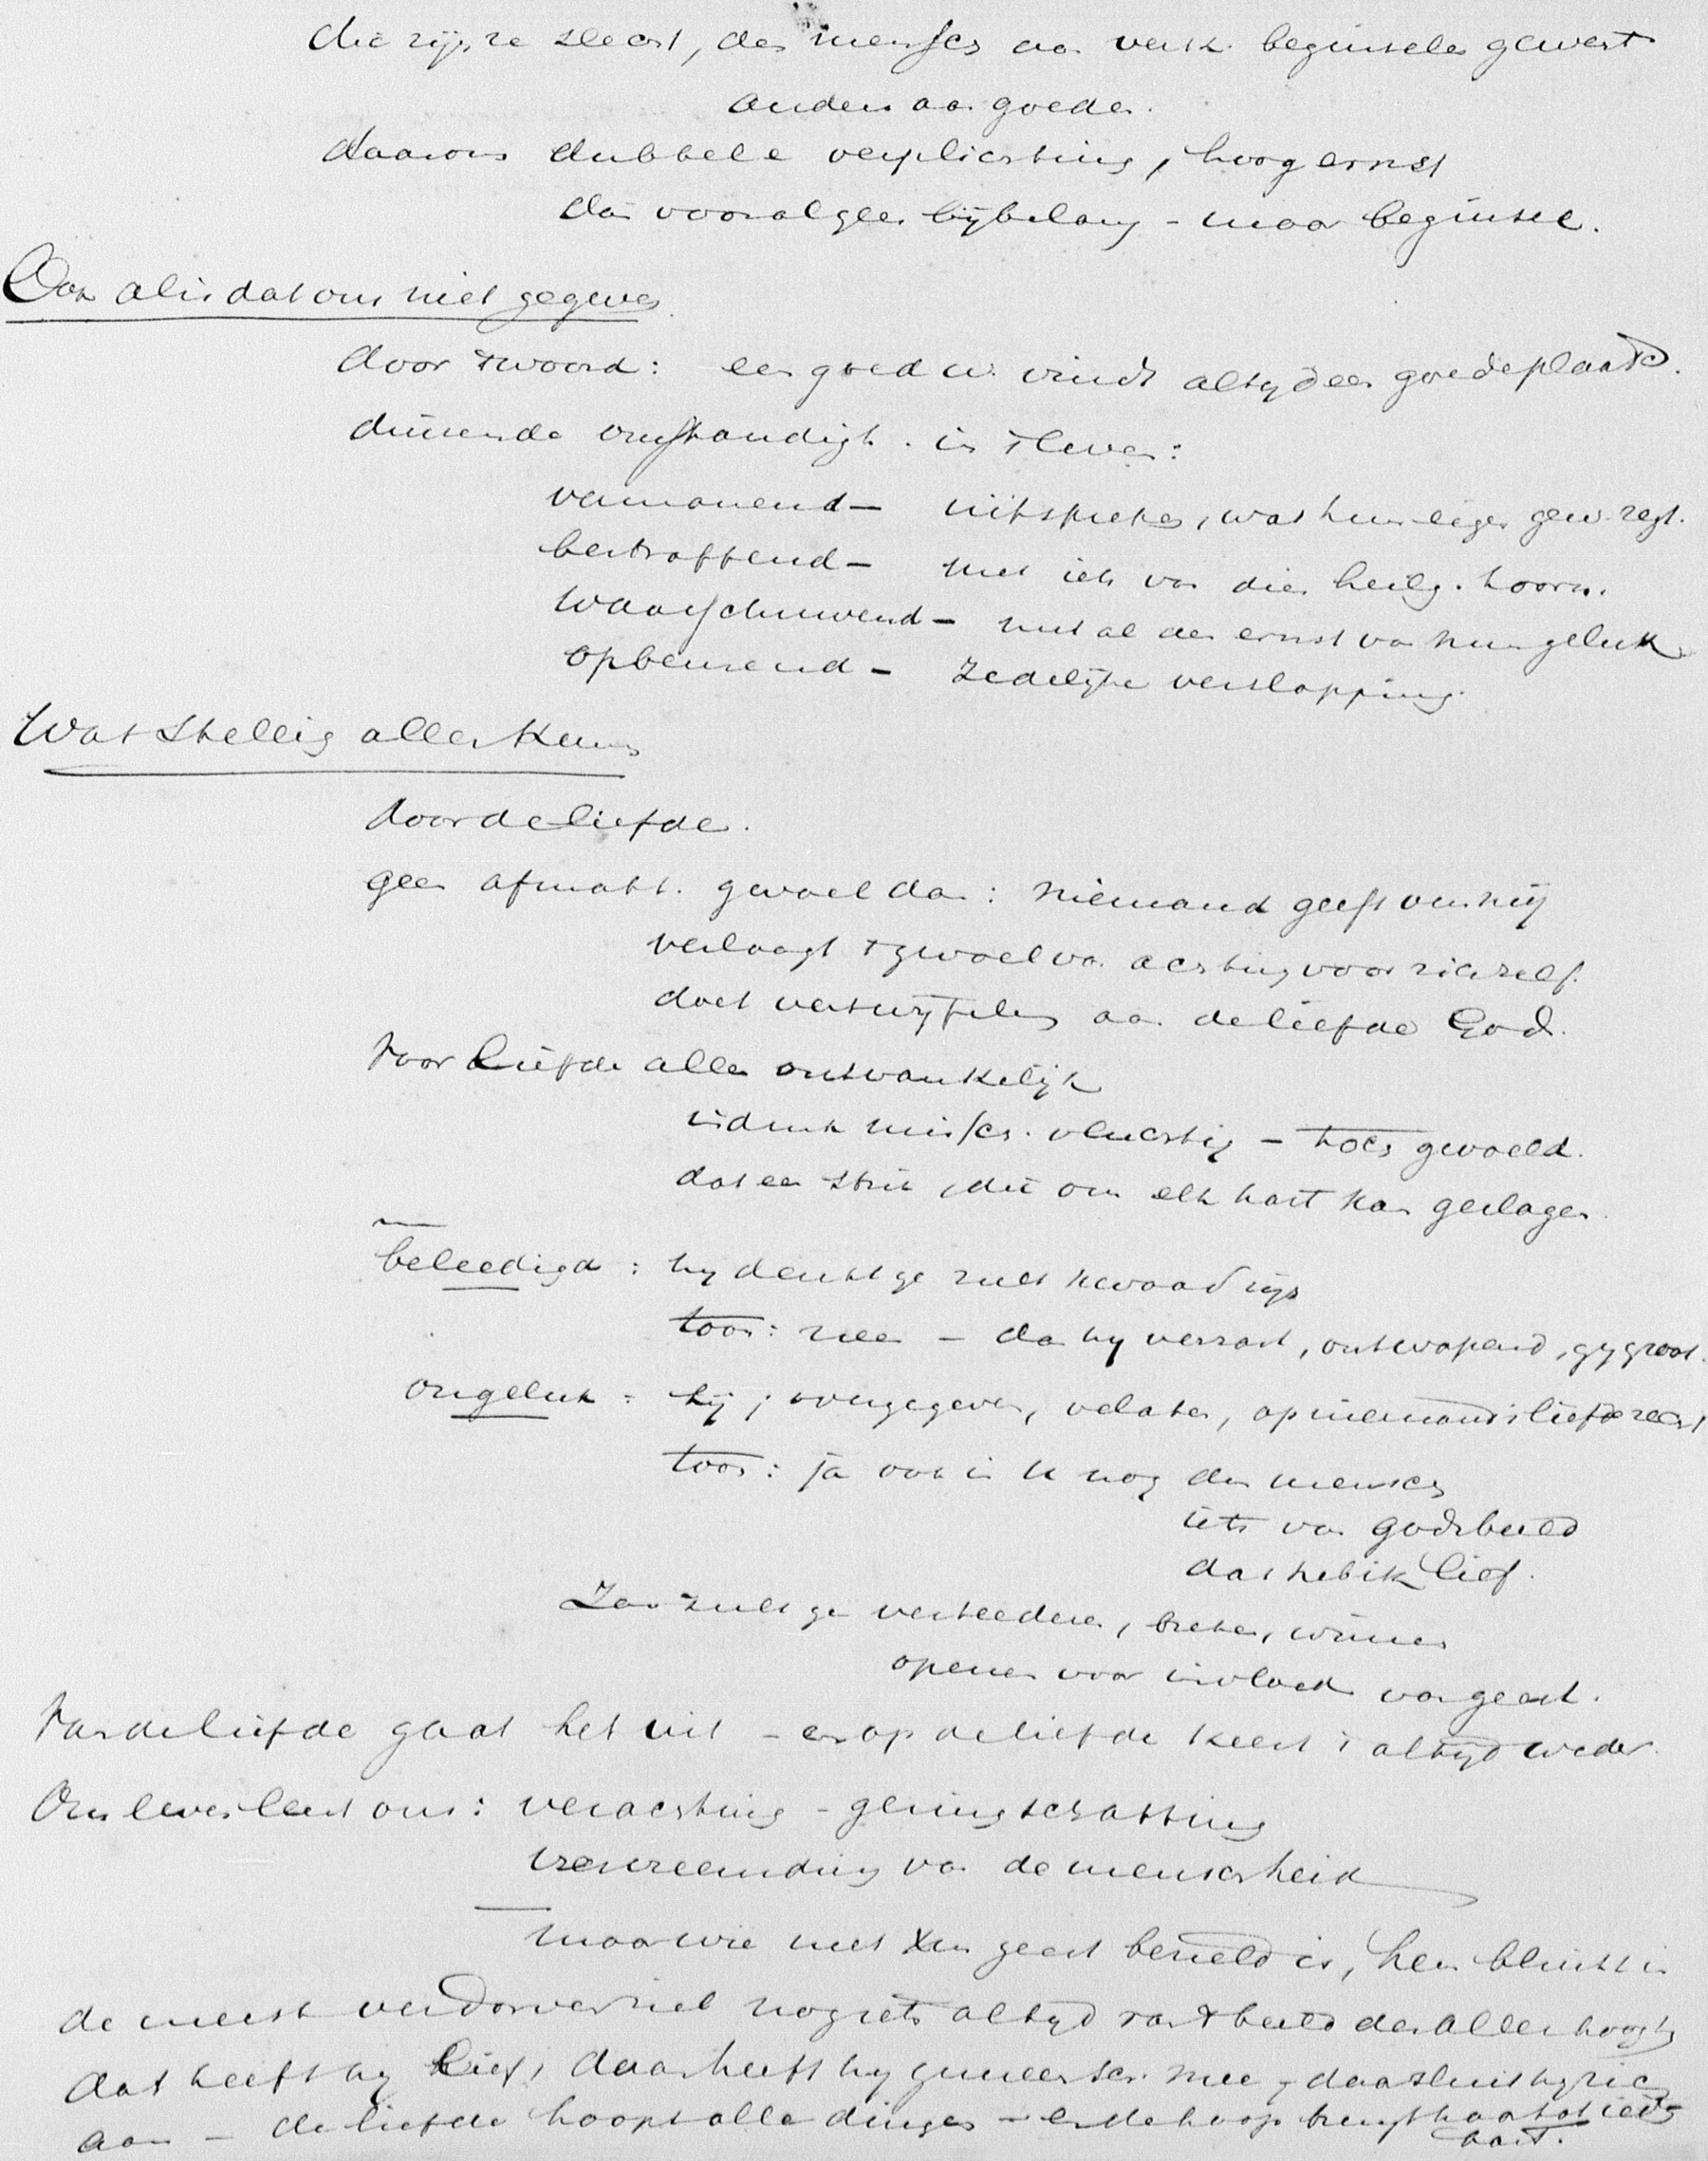 die zijn ze slecht, den menschen aan verk. beginselen gewent
anderen aan goede.
daarom dubbele verplichting, hoog ernst
dan vooral geen bijbelang - maar beginsel.
Ook al is dat ons niet gegeven
door 't woord: een goed w. vindt altyd een goede plaats.
duizende omstandigh. in 't leven:
vermanend - uitspreken, wat hun eigen gew. zegt.
bestraffend - met iets van dien heilg. toorn.
waarschuwend - met al den ernst van hun geluk
opbeurend - zedelijke verslapping.
Wat stellig allen kunnen
door de liefde.
geen afmatt. gevoel dan: niemand geeft om mij
verlaagt 't gevoel van achting voor zichzelf.
doet vertwijfelen aan de liefde God.
Voor liefde allen ontvankelijk
indruk missch. vluchtig - toch gevoeld.
dat een strik, die om elk hart kan geslagen.
beleedigd: hy denkt ge zult kwaad zijn
toon: neen - dan hy verrast, ontwapend, gy groot.
ongeluk: hij, overgegeven, verlaten, op niemands liefde recht
toon: ja ook in u nog den mensch
iets van Gods beeld
dat heb ik lief.
Zoo zult ge verteederen, breken, winnen
openen voor invloed van geest.
Van de liefde gaat het uit - en op de liefde keert 't altyd weder.
Ons leven leert ons: verachting - geringschatting
vervreemding van de menschheid
maar wie met Xus geest bezield is, hem blinkt in
de meest verdorven ziel nog iets altyd van 't beeld des Allerhoogsten
dat heeft hy lief, daar heeft hy gemeensch. mee, daar sluit hy zich
aan - de liefde hoopt alle dingen - en de hoop brengt haar tot iets